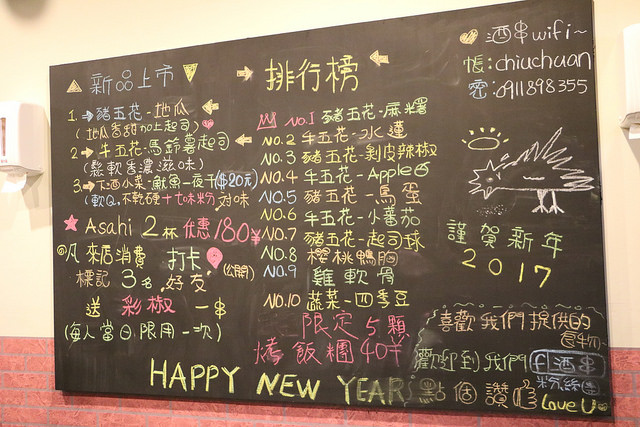 新品上市
1. 豬五花-地瓜
(地瓜香甜加上起司)
2 牛五花-馬鈴薯起司
(鬆軟香濃滋味)
3 下酒小菜-魷魚一夜干($20元)
(軟Q.不乾硬+七味粉 对味
Asahi 2杯 优惠180
凡來店消費 打卡 (公開)
標記3名好友
送彩椒一串
(每人當日限用一次)
排行榜
NO.1 豬五花-麻糬
NO.2 牛五花-水蓮
NO.3 豬五花-剝皮辣椒
NO.4 牛五花-Apple
NO.5 豬五花-鳥蛋
NO.6 牛五花-小蕃茄
NO.7 豬五花-起司球
NO.8 櫻桃鴨胸
NO.9 雞軟骨
NO.10 蔬菜-四季豆
限定5顆
烤飯糰40
酒串wifi~
帳:chiuchuan
密:0911898355
謹賀新年
2017
喜歡我們提供的
食物
歡迎到我們 f 酒串
粉絲團
點個讚 Love U
HAPPY NEW YEAR